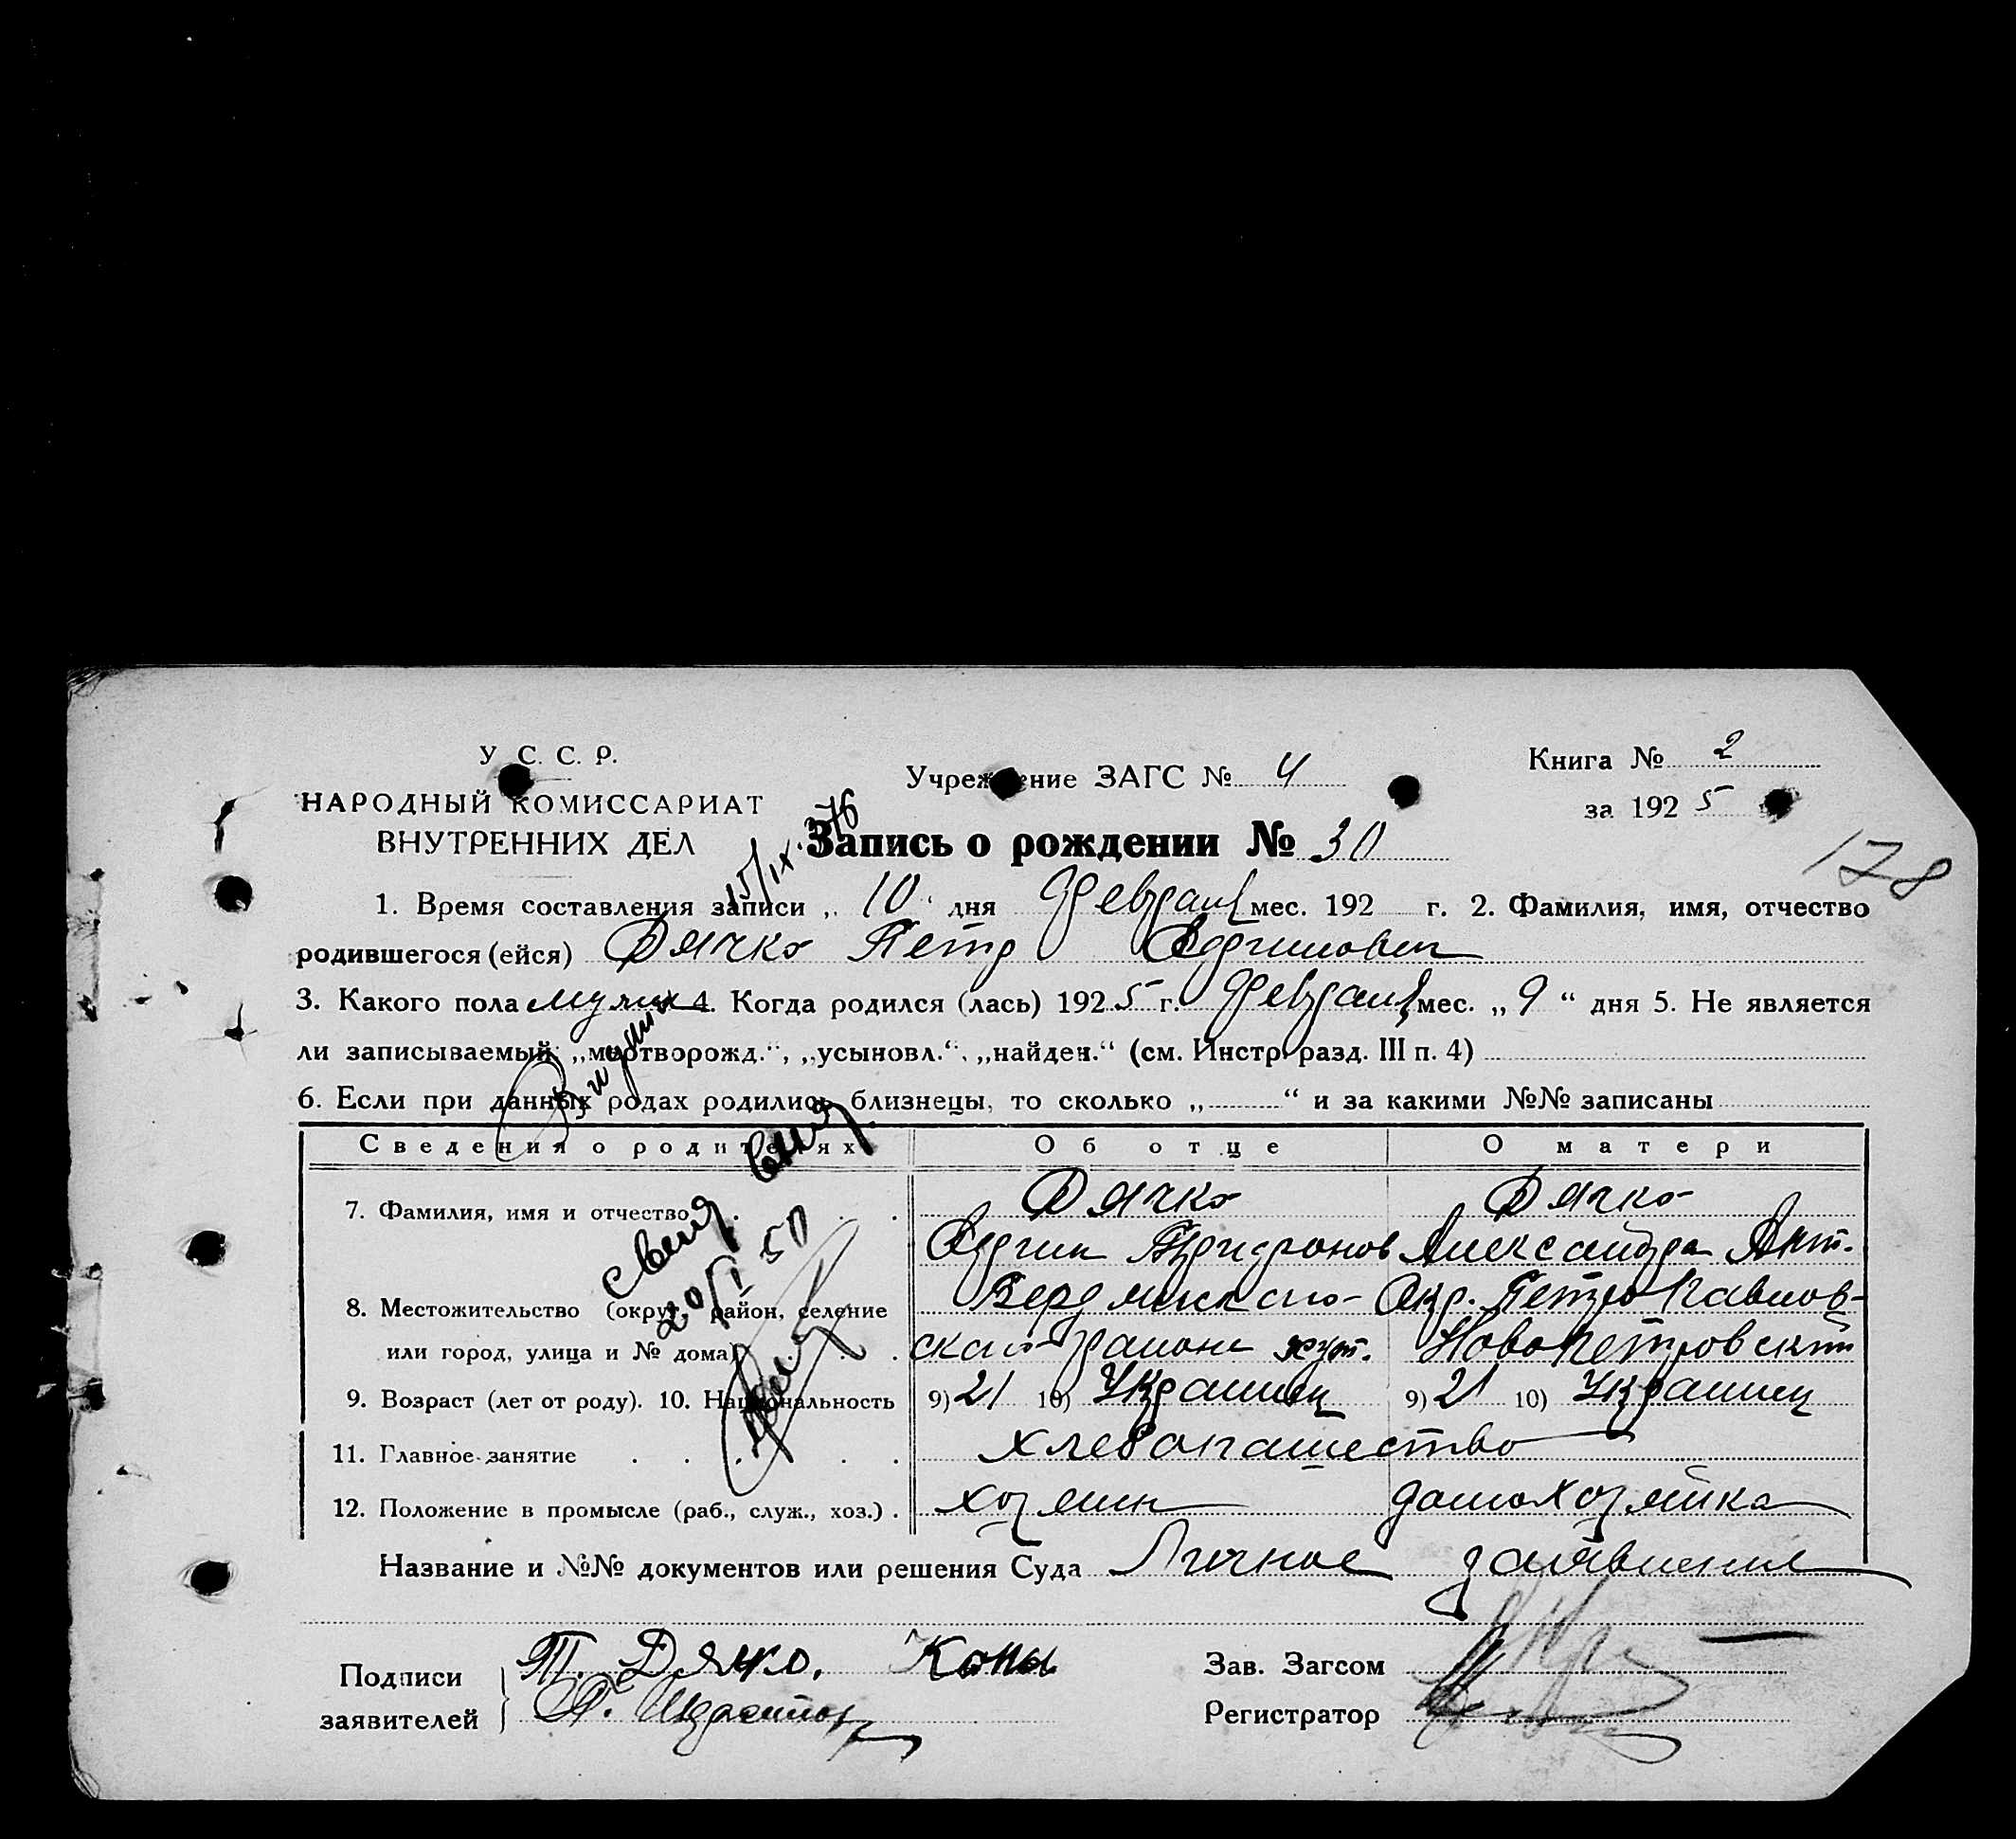 У С. С. Р.
НАРОДНЫЙ КОМИССАРИАТ
ВНУТРЕННИХ ДЕЛ
Учреждение ЗАГС № 4
Книга № 2
за 192 5
Запись о рождении № 30
178
15/IX. 376
1. Время составления записи „ 10 дня Февраля мес. 192 г. 2. Фамилия, имя, отчество
родившегося (ейся) Дячко Петр Ефимович
3. Какого пола мужск 4. Когда родился (лась) 1925 г. Февраля мес. „ 9 “ дня 5. Не является
ли записываемый: „мертворожд.“, „усыновл.“, „найден.“ (см. Инстр. разд. III п. 4)
6. Если при данных родах родились близнецы, то сколько „ “ и за какими №№ записаны
Сведения о родителях Об отце О матери
7. Фамилия, имя и отчество Дячко Дячко
Ефим Трифонов Александра Ант.
8. Местожительство (округ, район, селение Бердянского Окр. Петро Павлов-
или город, улица и № дома) ского района хут. Новопетровский
9. Возраст (лет от роду). 10. Национальность 9) 21 10) Украинец 9) 21 10) Украинец
11. Главное занятие хлебопашество
12. Положение в промысле (раб., служ., хоз.) хозяин домохозяйка
20/I 50
Название и №№ документов или решения Суда Личное заявление
Подписи заявителей Т. Дячко.
Зав. Загсом
Регистратор